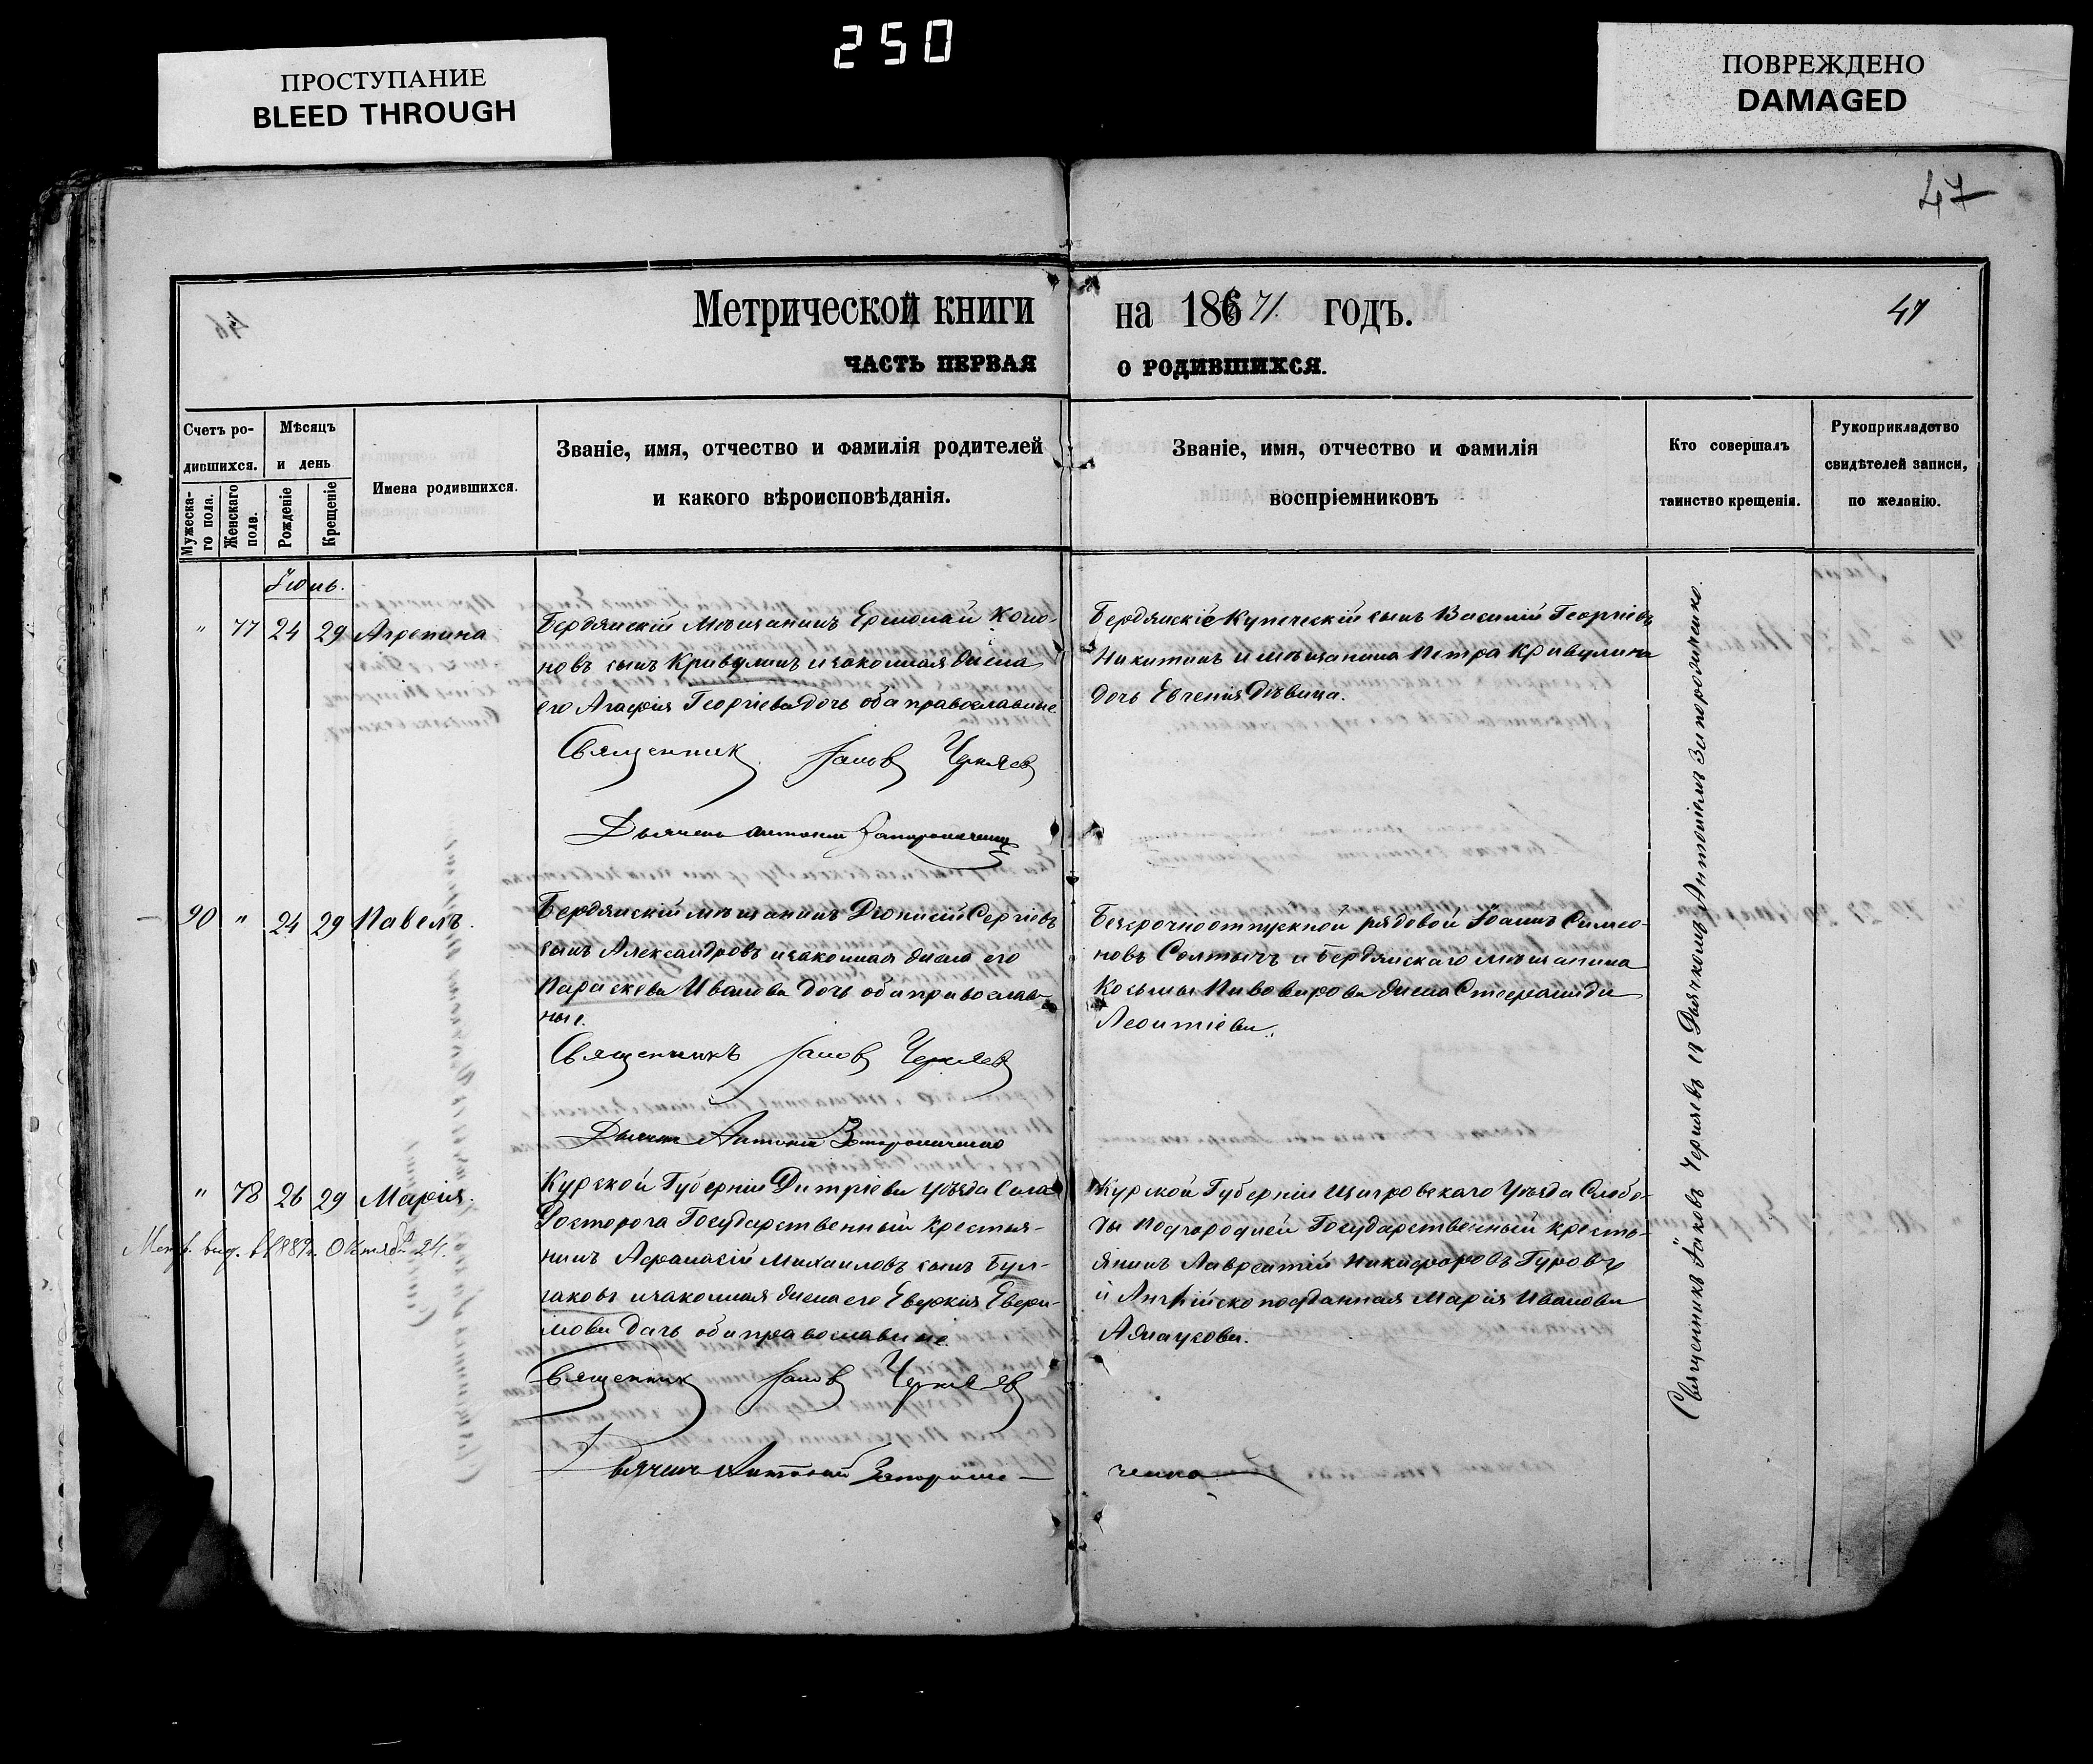 250
ПРОСТУПАНИЕ
BLEED THROUGH
ПОВРЕЖДЕНО
DAMAGED
47
Метрической книги на 18671 годъ.
47
ЧАСТЬ ПЕРВАЯ О РОДИВШИХСЯ.
Счетъ родившихся.
Мужескаго пола.
Женскаго пола.
Мѣсяцъ и день
Рожденіе
Крещеніе
Имена родившихся.
Званіе, имя, отчество и фамилія родителей
и какого вѣроисповѣданія.
Званіе, имя, отчество и фамилія
воспріемниковъ
Кто совершалъ
таинство крещенія.
Рукоприкладство
свидѣтелей записи,
по желанію.
Іюнь.
" 77 24 29 Агрепина
Бердянскій мѣщанинъ Ермолай Коно-
новъ сынъ Кривулинъ и законная жена
его Агафія Георгіева дочь оба православные
Священник Іаков Черняев
Дьячекъ Антоний Запорожченко
Бердянскіе Купеческій сынъ Василій Георгіевъ
Никитинъ и мѣщанина Петра Кривулина
дочь Евгенія дѣвица.
90 " 24 29 Павелъ.
Бердянскій мѣщанинъ Діонисій Сергіевъ
сынъ Александровъ и законная жена его
Параскева Иванова дочь оба православ-
ные.
Священникъ Іаков Черняев
Дьячекъ Антоний Запорожченко
Безсрочноотпускной рядовой Іоаннъ Симео-
новъ Солтычъ и Бердянскаго мѣщанина
Козьмы Пивоварова жена Стефанида
Леонтіева.
" 78 26 29 Марія.
Метр. выд. в 1889 г. Октября 24.
Курской Губерніи Дмитріева уѣзда Села
Ростороча Государственный крестья-
нинъ Афанасій Михаиловъ сынъ Бул-
гаковъ и законная жена его Евдокія
дочь оба православные.
Священник Іаков Черняев
Дьячекъ Антоній Запорож-
ченко
Курской Губерніи Щигровскаго Уѣзда Слобо-
ды Подгородней Государственный кресть-
янинъ Лаврентій Никифоровъ Гуровъ
и Англійско подданная Марія Иванова
Священникъ Іаковъ Черняевъ съ Дьячкомъ Антоніемъ Запорожченко.